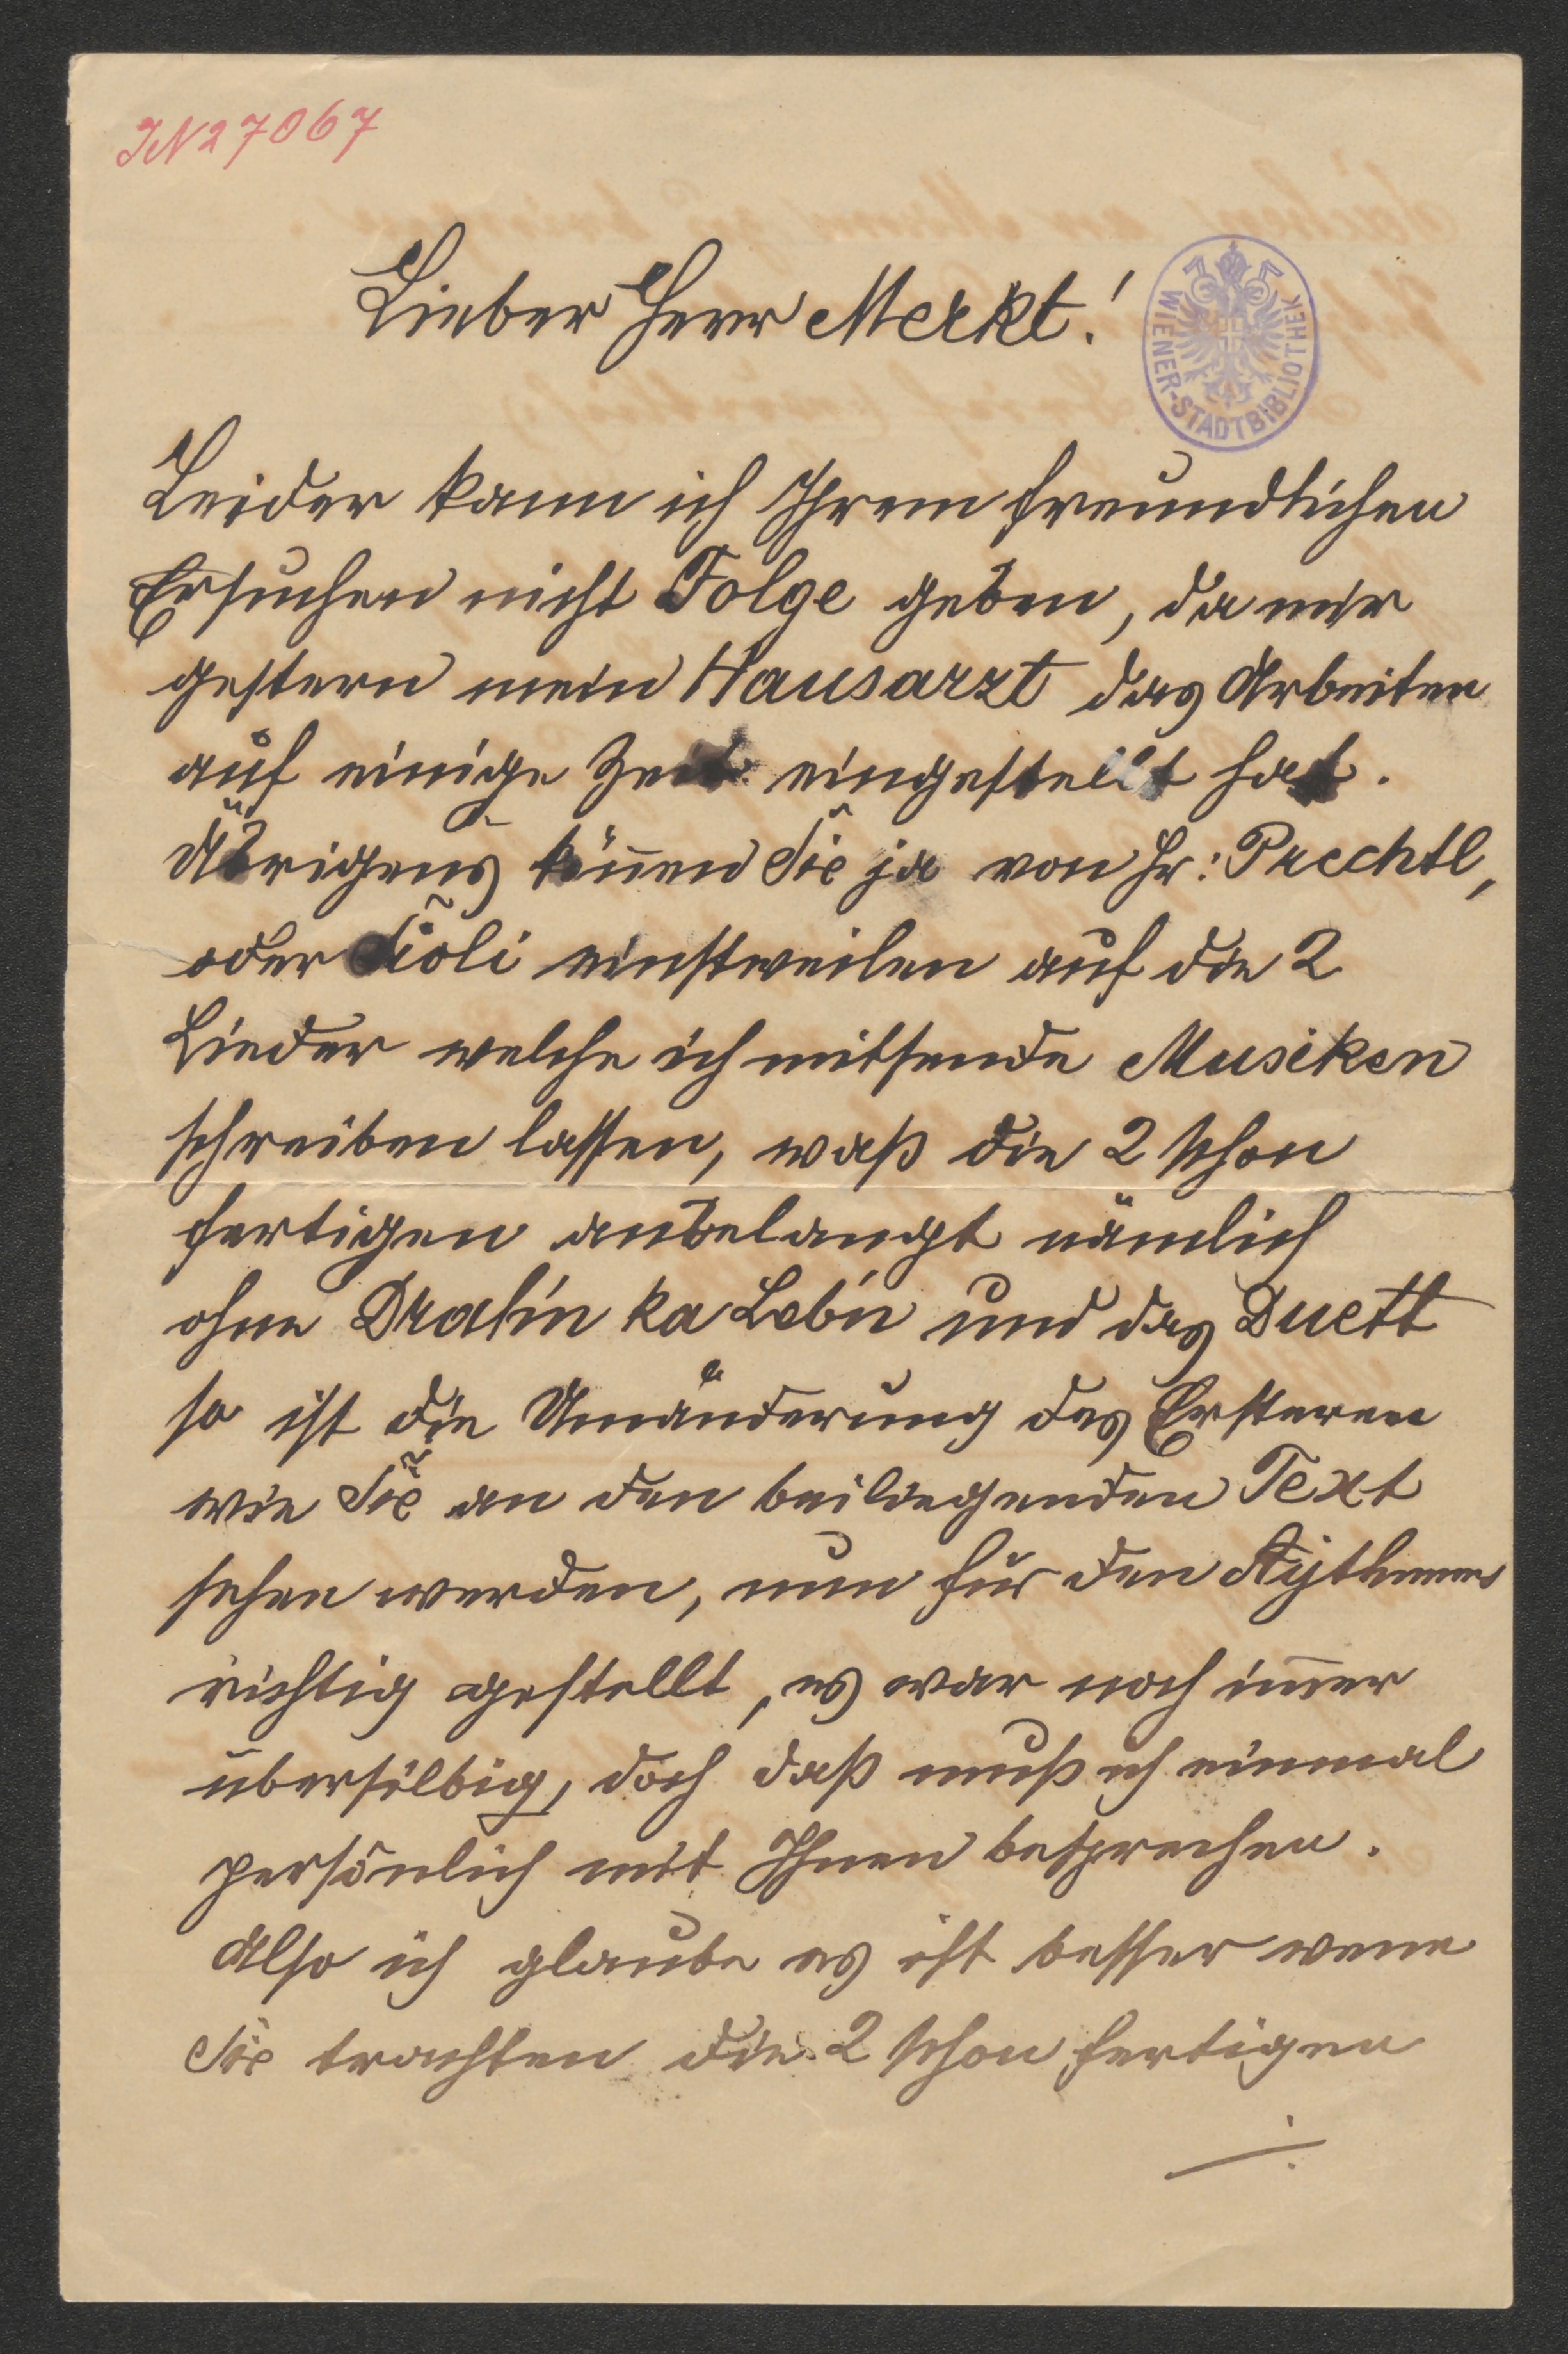 IN 27067
Lieber Herr Merkt!
WIENER-STADTBIBLIOTHEK
Leider kann ich Ihrem freundlichen
Ersuchen nicht Folge geben, da mir
gestern mein Hausarzt das Arbeiten
auf einige Zeit eingestellt hat.
Übrigens kön̄en Sie ja von Hr: Prechtl,
oder einstweilen auf die 2
Lieder welche ich mitsende Musiken
schreiben lassen, waß die 2 schon
fertigen anbelangt nämlich
ohne Drahn ka Leb'n und das Duett
so ist die Umänderung des Ersteren
wie Sie an den beiliegenden Text
sehen werden, nun für den Rythmus
richtig gestellt, es war noch im̄er
übersilbig, doch daß muß ich einmal
persönlich mit Ihnen besprechen.
Also ich glaube es ist besser wenn
Sie trachten die 2 schon fertigen